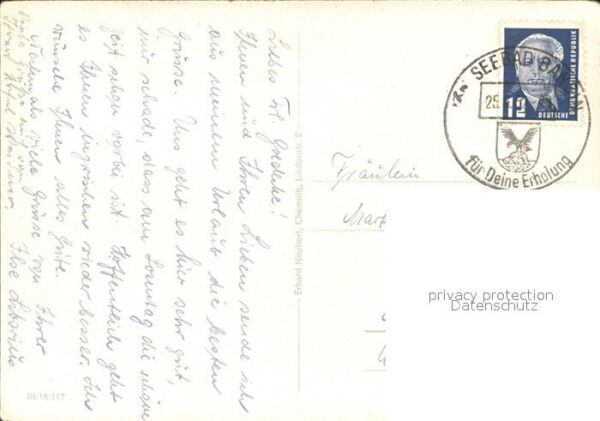 Liebes Frl. Gaedeke!
Ihnen und Ihren Lieben sende ich
aus meinem Urlaub die besten
Grüsse. Uns geht es hier sehr gut,
nur schade, dass am Sonntag die schöne
Zeit schon vorbei ist. Hoffentlich geht
es Ihnen inzwischen wieder besser. Ich
wünsche Ihnen alles Gute.
Nochmals viele Grüsse von Ihrer
Ilse
Viele Grüße auch von
Erhard Neubert, Chemnitz, Limbacherstr. 2
III/18/117
Fräulein
SEEBAD BANSIN
25.
für Deine Erholung
12
DEUTSCHE
DEMOKRATISCHE REPUBLIK
privacy protection
Datenschutz